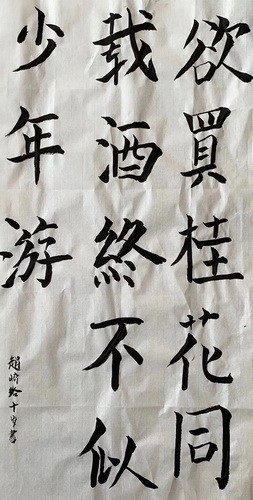 欲買桂花同
載酒終不似
少年游
趙崎鈴十歲書